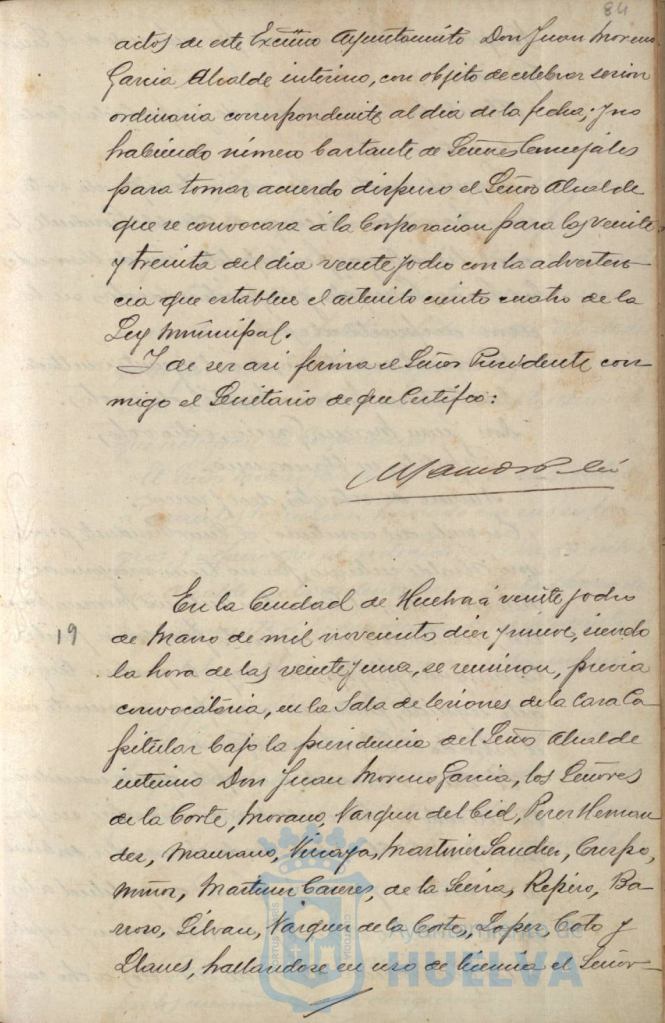 84
actos de este Excmo Ayuntamiento Don Juan Moreno
Garcia Alcalde interino, con objeto de celebrar sesion
ordinaria correspondiente al dia de la fecha; y no
habiendo número bastante de Señores Concejales
para tomar acuerdo dispuso el Señor Alcalde
que se convocara á la Corporacion para las veinte
y treinta del dia veinte y ocho con la adverten-
cia que establece el articulo ciento cuatro de la
Ley Municipal.
Y de ser asi firma el Señor Presidente con-
migo el Secretario de que Certifico:
En la Ciudad de Huelva á veinte y ocho
19
de Marzo de mil novecientos diez y nueve, siendo
la hora de las veinte y una, se reunieron, previa
convocatoria, en la Sala de Sesiones de la Casa Ca-
pitular bajo la presidencia del Señor Alcalde
interino Don Juan Moreno Garcia, los Señores
de la Corte, Morano, Vazquez del Cid, Perez Hernan
dez, Mascaros, Vizcaya, Martinez Sanchez, Crespo,
Muñoz, Martinez Caceres, de la Sierra, Repiso, Ba-
rroso, Gilvan, Vazquez de la Corte, Lopez, Coto y
Llanes, hallandose en uso de licencia el Señor
Ayuntamiento de
HUELVA